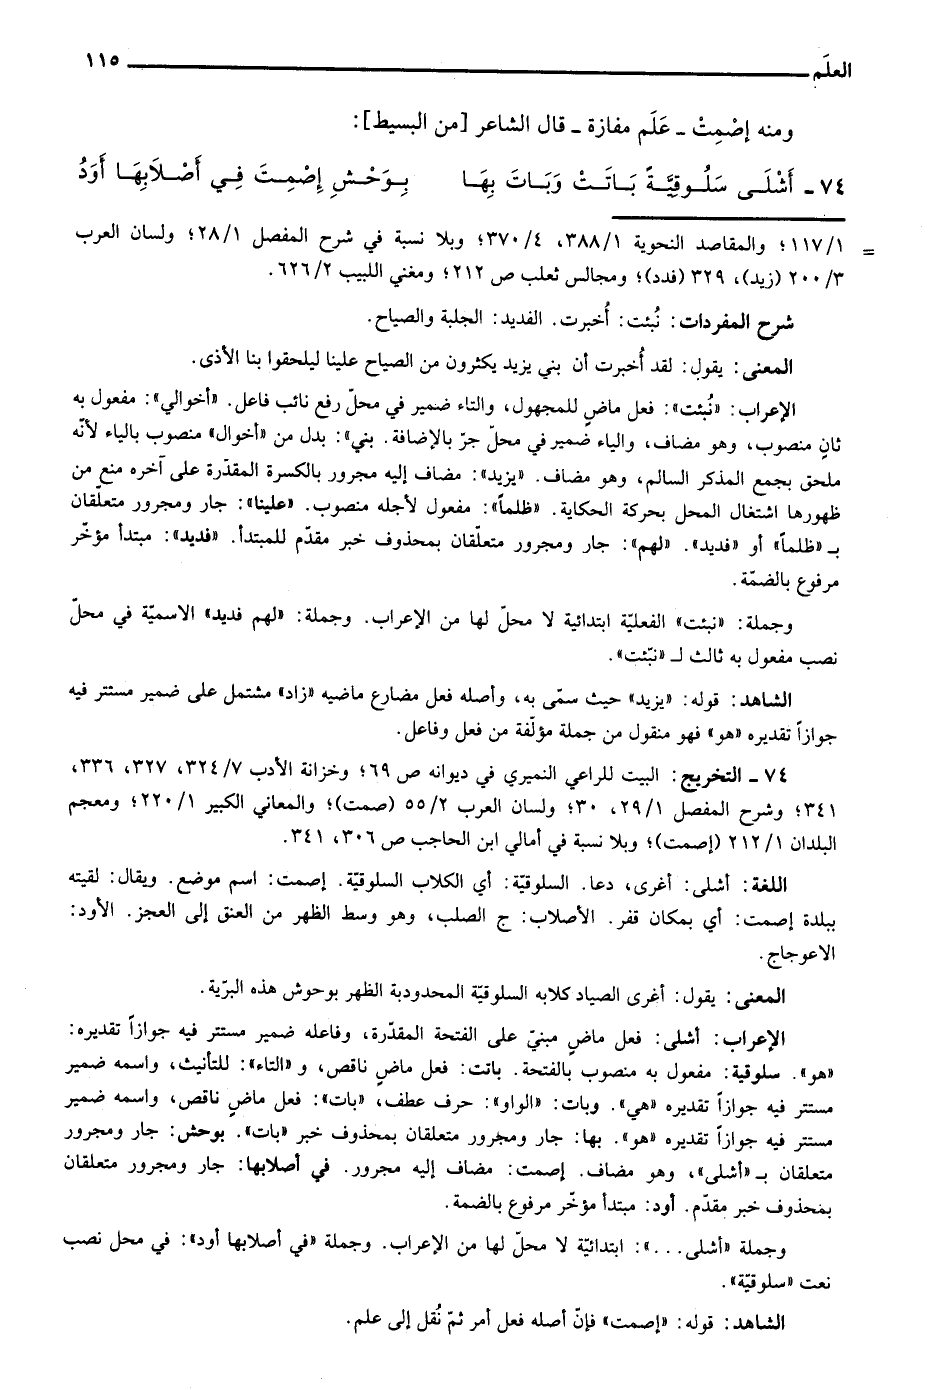 العلَم ١١٥
ومنه إصْمِتْ ـ عَلَم مفازة ـ قال الشاعر [من البسيط]:
٧٤ ـ أَشْلَى سَلُوقِيَّةً بَاتَتْ وَبَاتَ بِهَا بِوَحْشِ إِصْمِتَ فِي أَصْلَابِهَا أَوَدُ
= ١/١١٧؛ والمقاصد النحوية ١/٣٨٨، ٤/٣٧٠؛ وبلا نسبة في شرح المفصل ١/٢٨؛ ولسان العرب
٣/٢٠٠ (زيد)، ٣٢٩ (فدد)؛ ومجالس ثعلب ص ٢١٢؛ ومغني اللبيب ٢/٦٢٦.
شرح المفردات: نُبئت: أُخبرت. الفديد: الجلبة والصياح.
المعنى: يقول: لقد أُخبرت أن بني يزيد يكثرون من الصياح علينا ليلحقوا بنا الأذى.
الإعراب: «نُبئت»: فعل ماضٍ للمجهول، والتاء ضمير في محلّ رفع نائب فاعل. «أخوالي»: مفعول به
ثانٍ منصوب، وهو مضاف، والياء ضمير في محلّ جرّ بالإضافة. بني»: بدل من «أخوال» منصوب بالياء لأنّه
ملحق بجمع المذكر السالم، وهو مضاف. «يزيد»: مضاف إليه مجرور بالكسرة المقدّرة على آخره منع من
ظهورها اشتغال المحل بحركة الحكاية. «ظلماً»: مفعول لأجله منصوب. «علينا»: جار ومجرور متعلّقان
بـ «ظلماً» أو «فديد». «لهم»: جار ومجرور متعلّقان بمحذوف خبر مقدّم للمبتدأ. «فديد»: مبتدأ مؤخّر
مرفوع بالضمّة.
وجملة: «نبئت» الفعليّة ابتدائية لا محلّ لها من الإعراب. وجملة: «لهم فديد» الاسميّة في محلّ
نصب مفعول به ثالث لـ «نبّئت».
الشاهد: قوله: «يزيد» حيث سمّى به، وأصله فعل مضارع ماضيه «زاد» مشتمل على ضمير مستتر فيه
جوازاً تقديره «هو» فهو منقول من جملة مؤلّفة من فعل وفاعل.
٧٤ ـ التخريج: البيت للراعي النميري في ديوانه ص ٦٩؛ وخزانة الأدب ٧/٣٢٤، ٣٢٧، ٣٣٦،
٣٤١؛ وشرح المفصل ١/٢٩، ٣٠؛ ولسان العرب ٢/٥٥ (صمت)؛ والمعاني الكبير ١/٢٢٠؛ ومعجم
البلدان ١/٢١٢ (إصمت)؛ وبلا نسبة في أمالي ابن الحاجب ص ٣٠٦، ٣٤١.
اللغة: أشلى: أغرى، دعا. السلوقيّة: أي الكلاب السلوقيّة. إصمت: اسم موضع. ويقال: لقيته
ببلدة إصمت: أي بمكان قفر. الأصلاب: ج الصلب، وهو وسط الظهر من العنق إلى العجز. الأود:
الاعوجاج.
المعنى: يقول: أغرى الصياد كلابه السلوقيّة المحدودبة الظهر بوحوش هذه البرّية.
الإعراب: أشلى: فعل ماضٍ مبنيّ على الفتحة المقدّرة، وفاعله ضمير مستتر فيه جوازاً تقديره:
«هو». سلوقية: مفعول به منصوب بالفتحة. باتت: فعل ماضٍ ناقص، و «التاء»: للتأنيث، واسمه ضمير
مستتر فيه جوازاً تقديره «هي». وبات: «الواو»: حرف عطف، «بات»: فعل ماضٍ ناقص، واسمه ضمير
مستتر فيه جوازاً تقديره «هو». بها: جار ومجرور متعلقان بمحذوف خبر «بات». بوحش: جار ومجرور
متعلقان بـ «أشلى»، وهو مضاف. إصمت: مضاف إليه مجرور. في أصلابها: جار ومجرور متعلقان
بمحذوف خبر مقدّم. أود: مبتدأ مؤخّر مرفوع بالضمة.
وجملة «أشلى...»: ابتدائيّة لا محلّ لها من الإعراب. وجملة «في أصلابها أود»: في محل نصب
نعت «سلوقيّة».
الشاهد: قوله: «إصمت» فإنّ أصله فعل أمر ثمّ نُقل إلى علم.